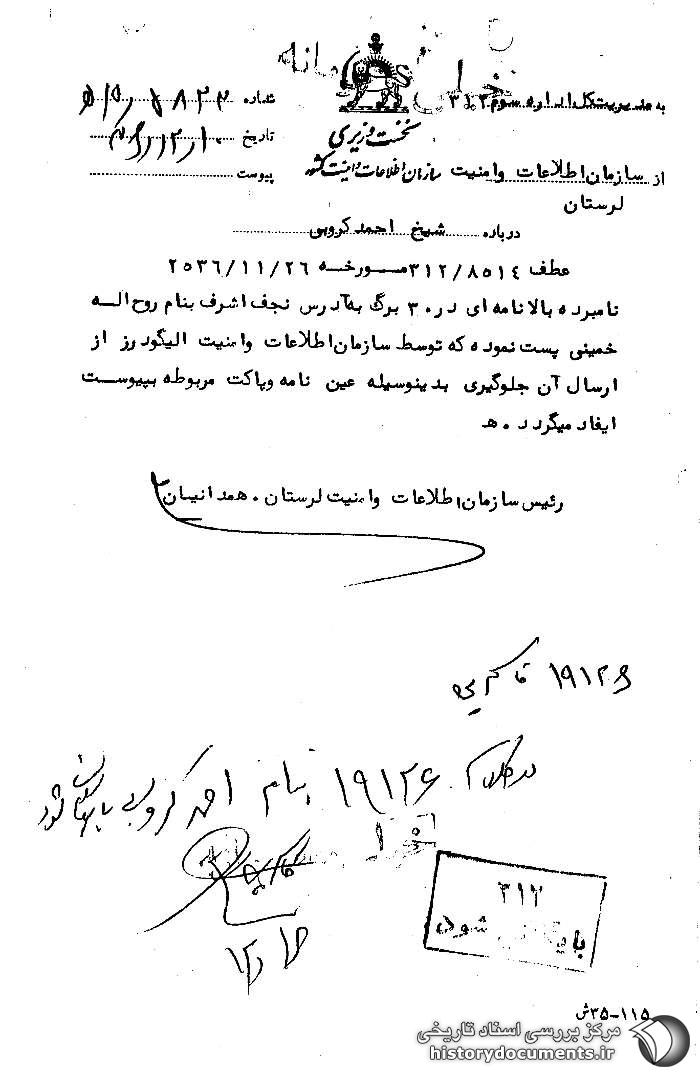 خیلی محرمانه
به مدیریت کل اداره سوم ۳۱۲
شماره
نخست وزیری
تاریخ
سازمان اطلاعات و امنیت کشور
از سازمان اطلاعات و امنیت لرستان
پیوست
درباره شیخ احمد کروبی
عطف ۳۱۲/۸۵۱۴ مورخه ۲۵۳۶/۱۱/۲۶
نامبرده بالا نامه ای در ۳۰ برگ به آدرس نجف اشرف بنام روح اله
خمینی پست نموده که توسط سازمان اطلاعات و امنیت الیگودرز از
ارسال آن جلوگیری بدینوسیله عین نامه و پاکت مربوطه بپیوست
ایفاد میگردد . هـ
رئیس سازمان اطلاعات و امنیت لرستان . همدانیان
۱۹۱۲۶
در کلاسه ۱۹۱۲۶ بنام احمد کروبی بایگانی شود
۳۱۲
بایگانی شود
۳۵-۱۱۵ش
مرکز بررسی اسناد تاریخی
historydocuments.ir